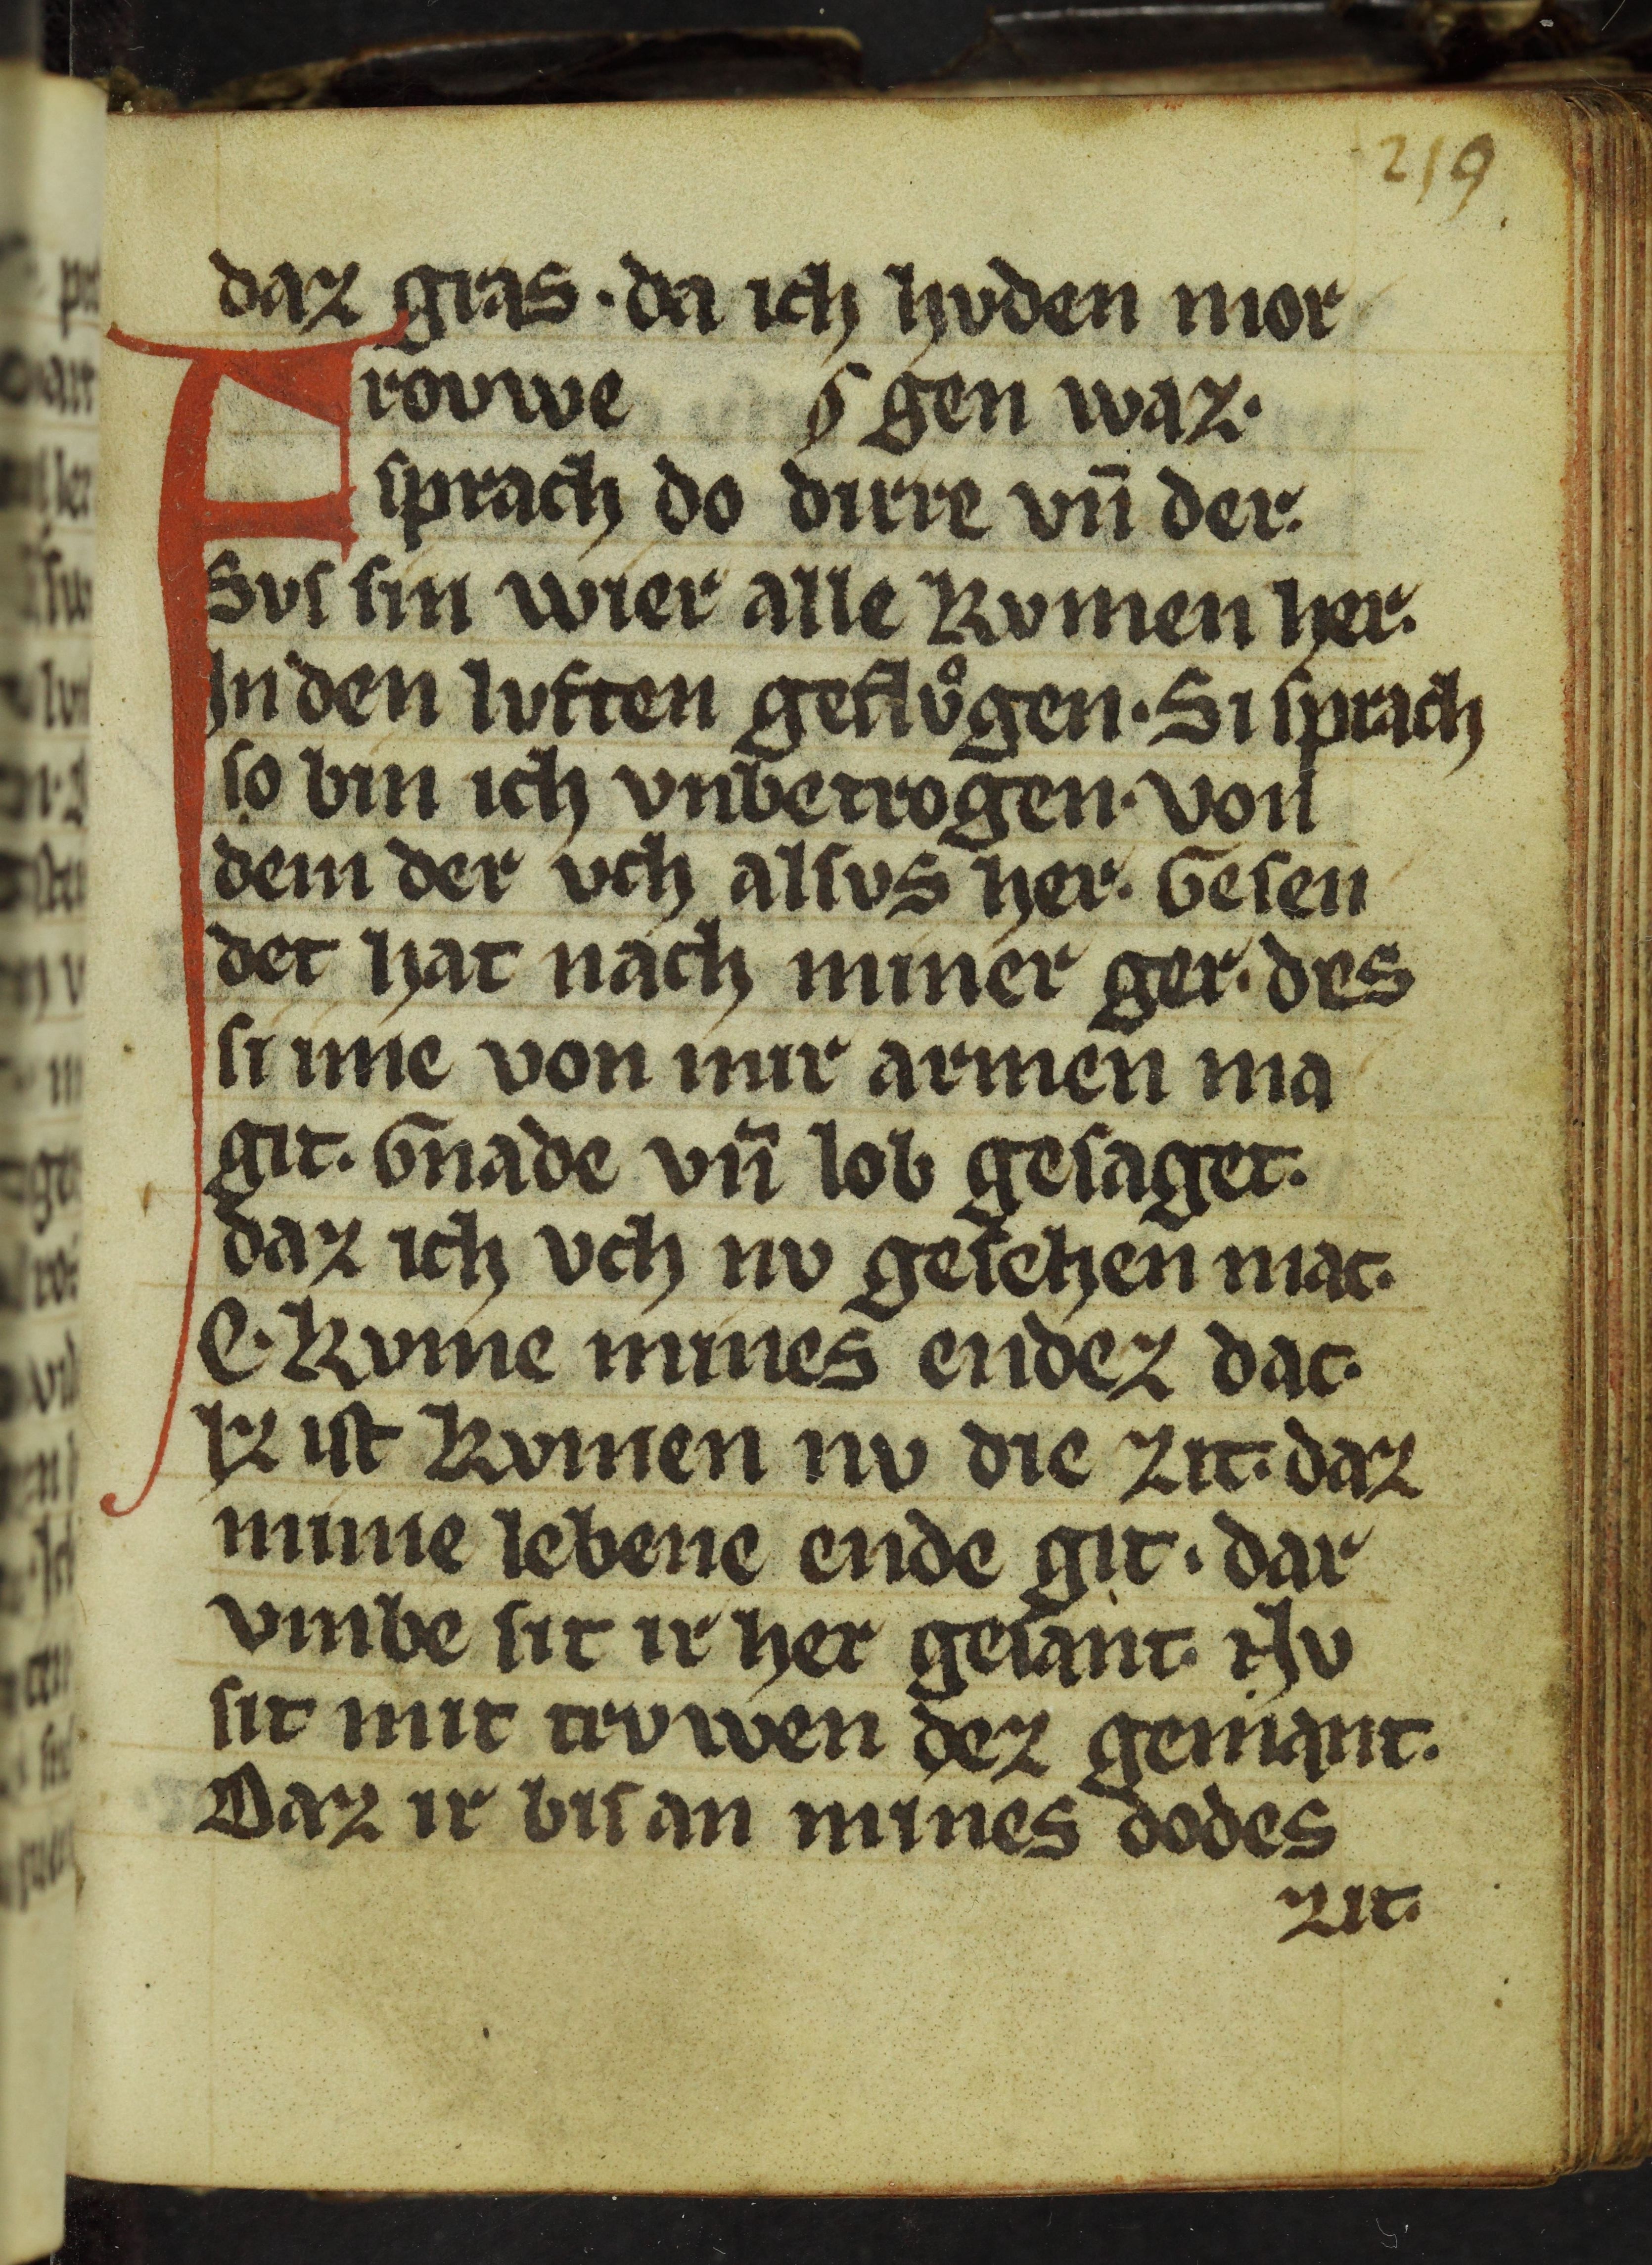 219
daz gras · da ich hvden mor
Frouwe ꝯgen waz·
sprach do dirre vn̄ der·
Svs sin wier alle kvmen her·
In den lvften geflvͦgen · Si sprach
so bin ich vnbetrogen · von
dem der vch alsvs her · Gesen
det hat nach miner ger · des
si ime von mir armen ma
git · Gnade vn̄ lob gesaget·
daz ich vch nv gesehen mac·
E · kvme mines endez dac·
Iz ist kvmen nv die zit · daz
mime lebene ende git · dar
vmbe sit ir her gesant · Nv
sit mit trvwen dez gemant·
Daz ir bis an mines dodes
zit·